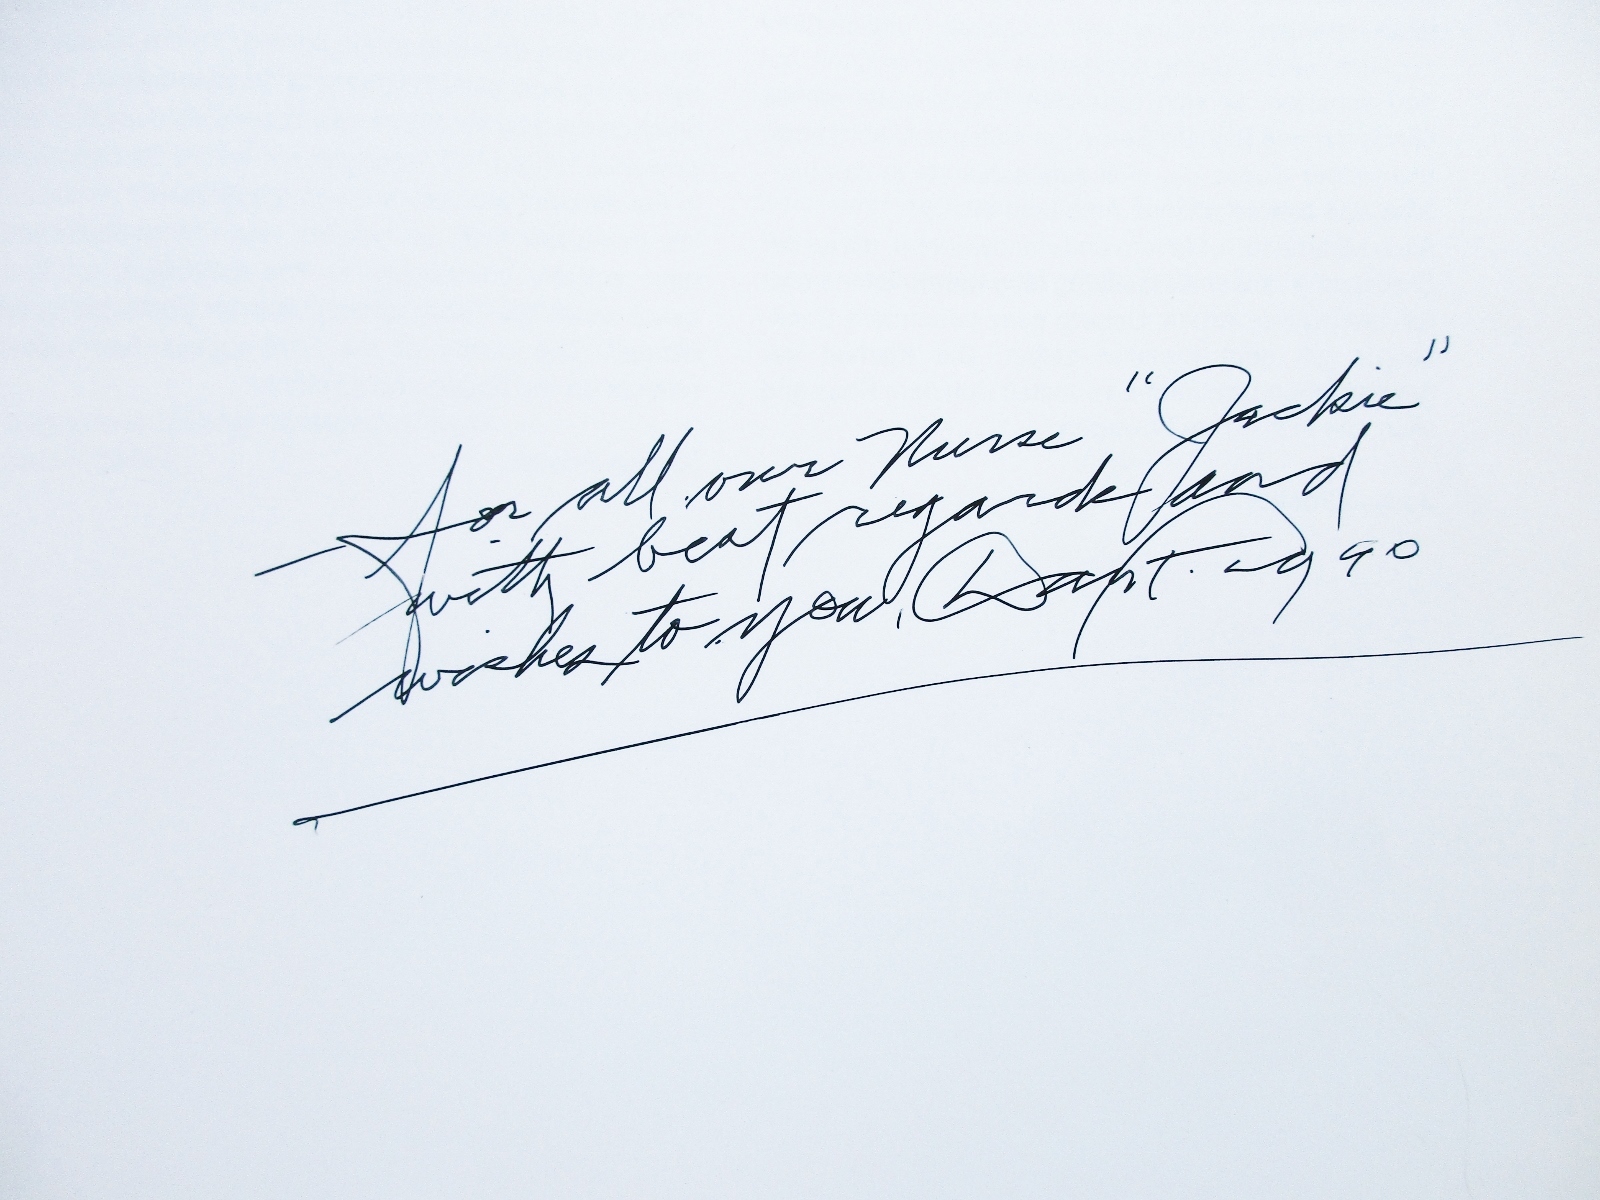 For all our Nurse "Jackie"
with best regards and
wishes to you, Sept. 29 90